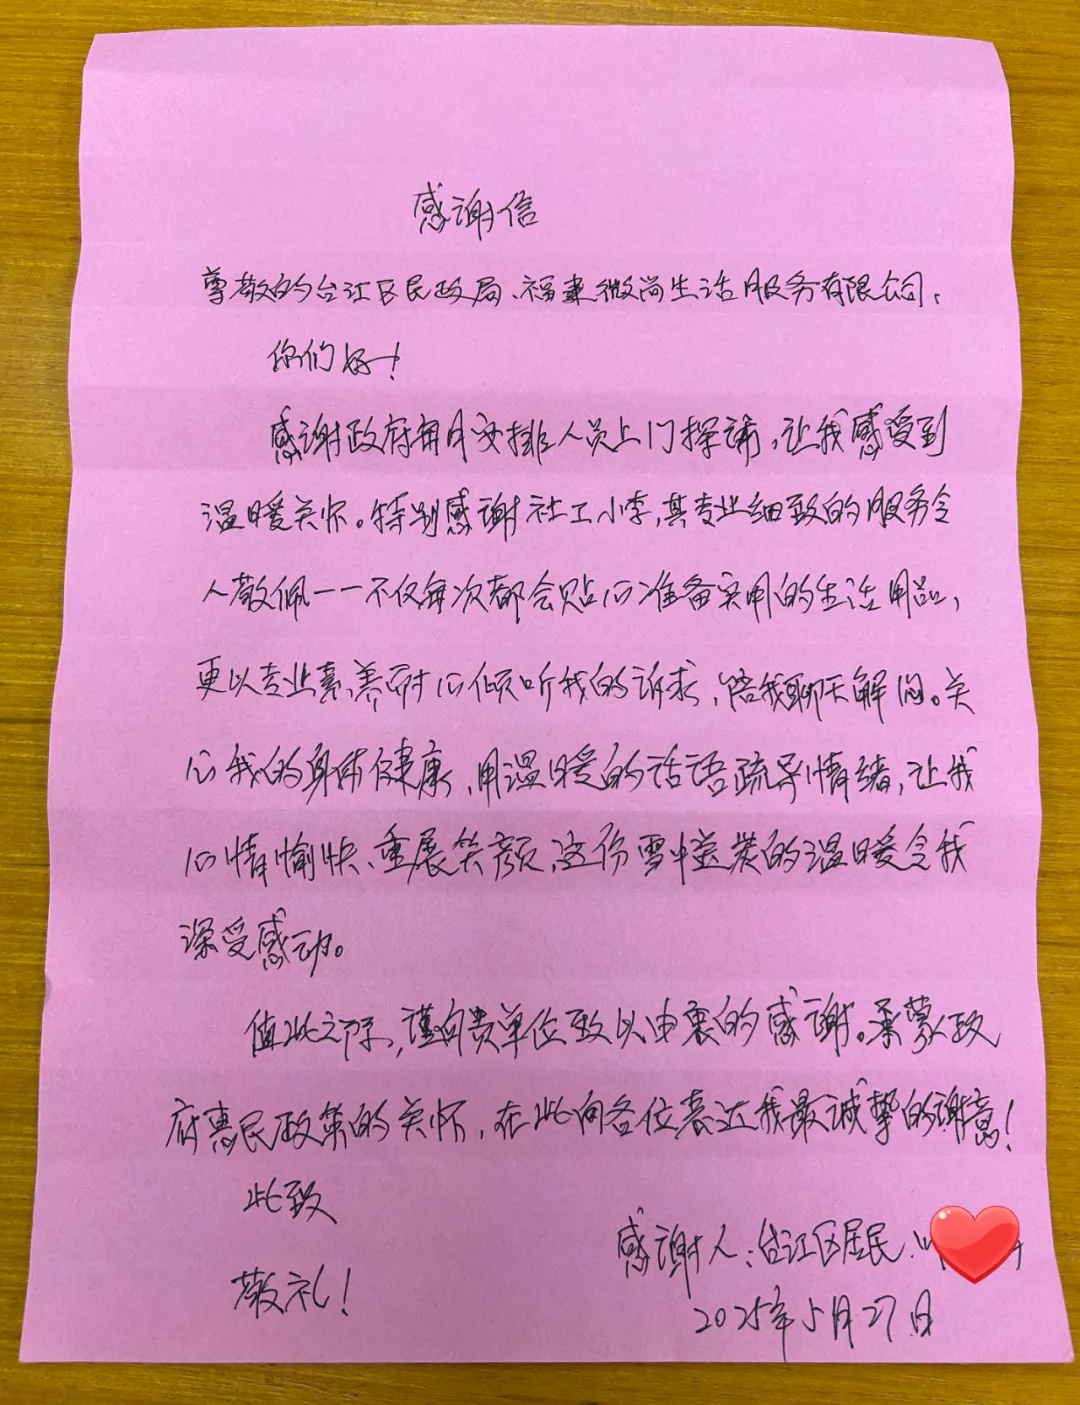 感谢信
尊敬的台江区民政局、福建微尚生活服务有限公司：
你们好！
感谢政府每月安排人员上门探访，让我感受到
温暖关怀。特别感谢社工小李，其专业细致的服务令
人敬佩——不仅每次都会贴心准备实用的生活用品，
更以专业素养耐心倾听我的诉求，陪我聊天解闷。关
心我的身体健康，用温暖的话语疏导情绪，让我
心情愉快、重展笑颜，这份雪中送炭的温暖令我
深受感动。
值此之际，谨向贵单位致以由衷的感谢。承蒙政
府惠民政策的关怀，在此向各位表达我最诚挚的谢意！
此致
敬礼！
感谢人：台江区居民
2025年5月27日